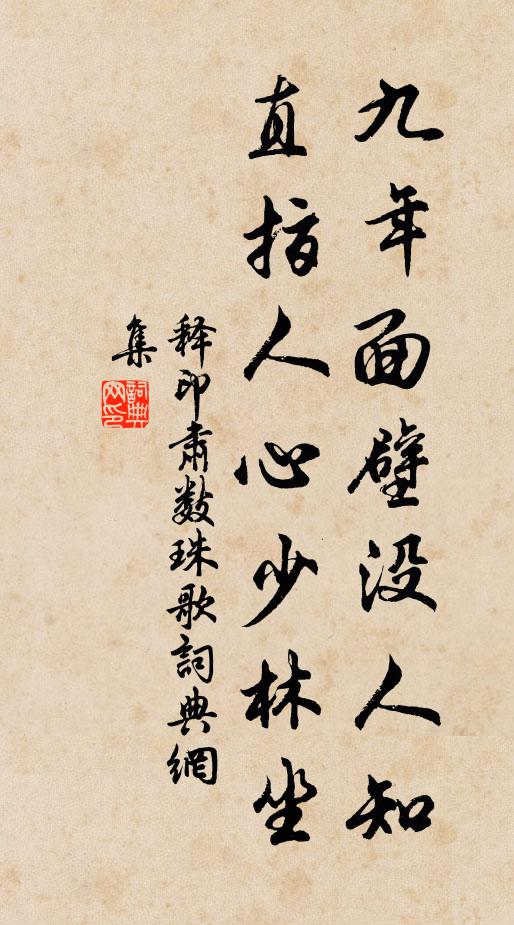 九年面壁没人知
直指人心少林坐
释印肃數珠歌詞典網
集
詞典
网印